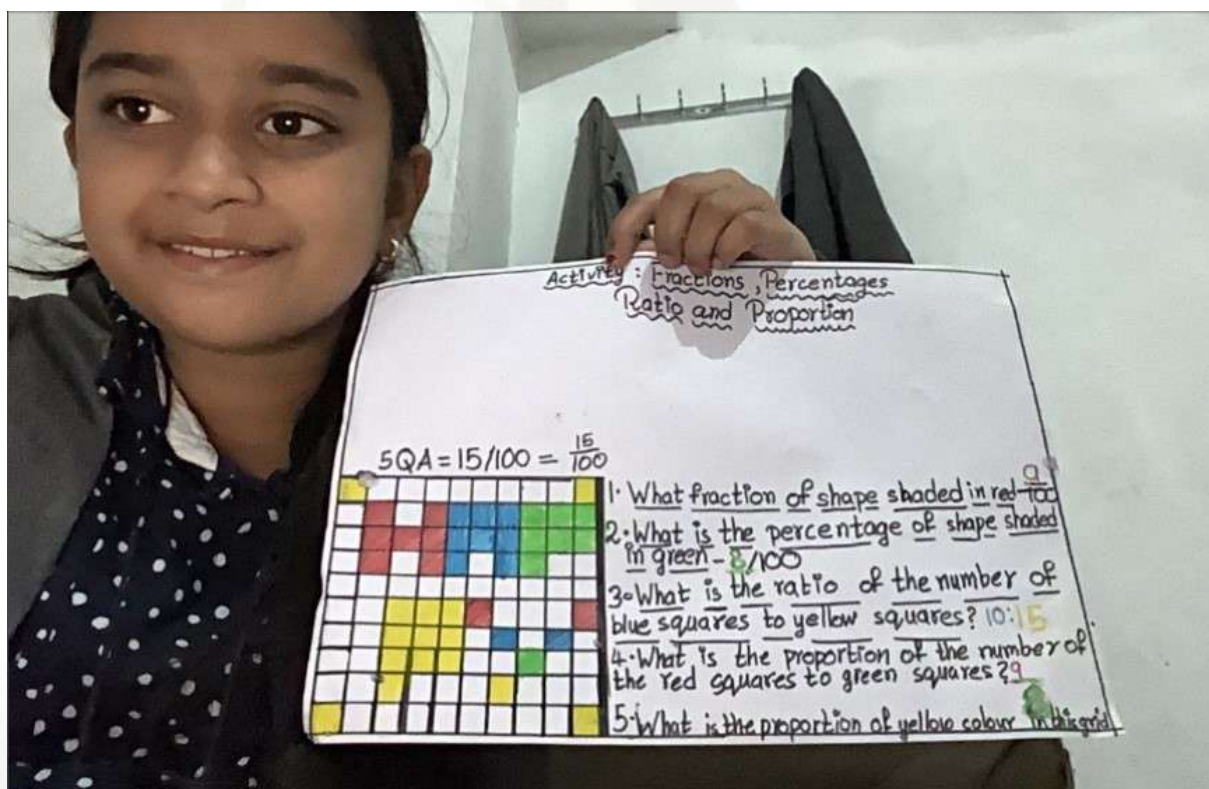 Activity : Fractions , Percentages
Ratio and Proportion
5QA = 15/100 = 15/100
1. What fraction of shape shaded in red 9/100
2. What is the percentage of shape shaded
in green - 8/100
3. What is the ratio of the number of
blue squares to yellow squares? 10:15
4. What is the proportion of the number of
the red squares to green squares? 9
5. What is the proportion of yellow colour in this grid